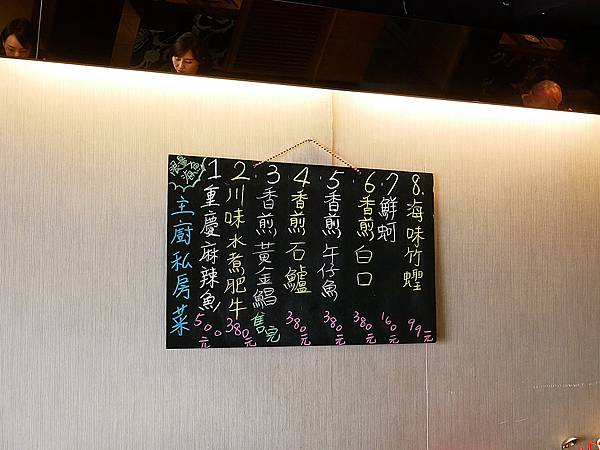 主廚私房菜
1.重慶麻辣魚 500元
2.川味水煮肥牛 380元
3.香煎黃金鯧 售完
4.香煎石鱸 380元
5.香煎午仔魚 380元
6.香煎白口 380元
7.鮮蚵 160元
8.海味竹蟶 99元